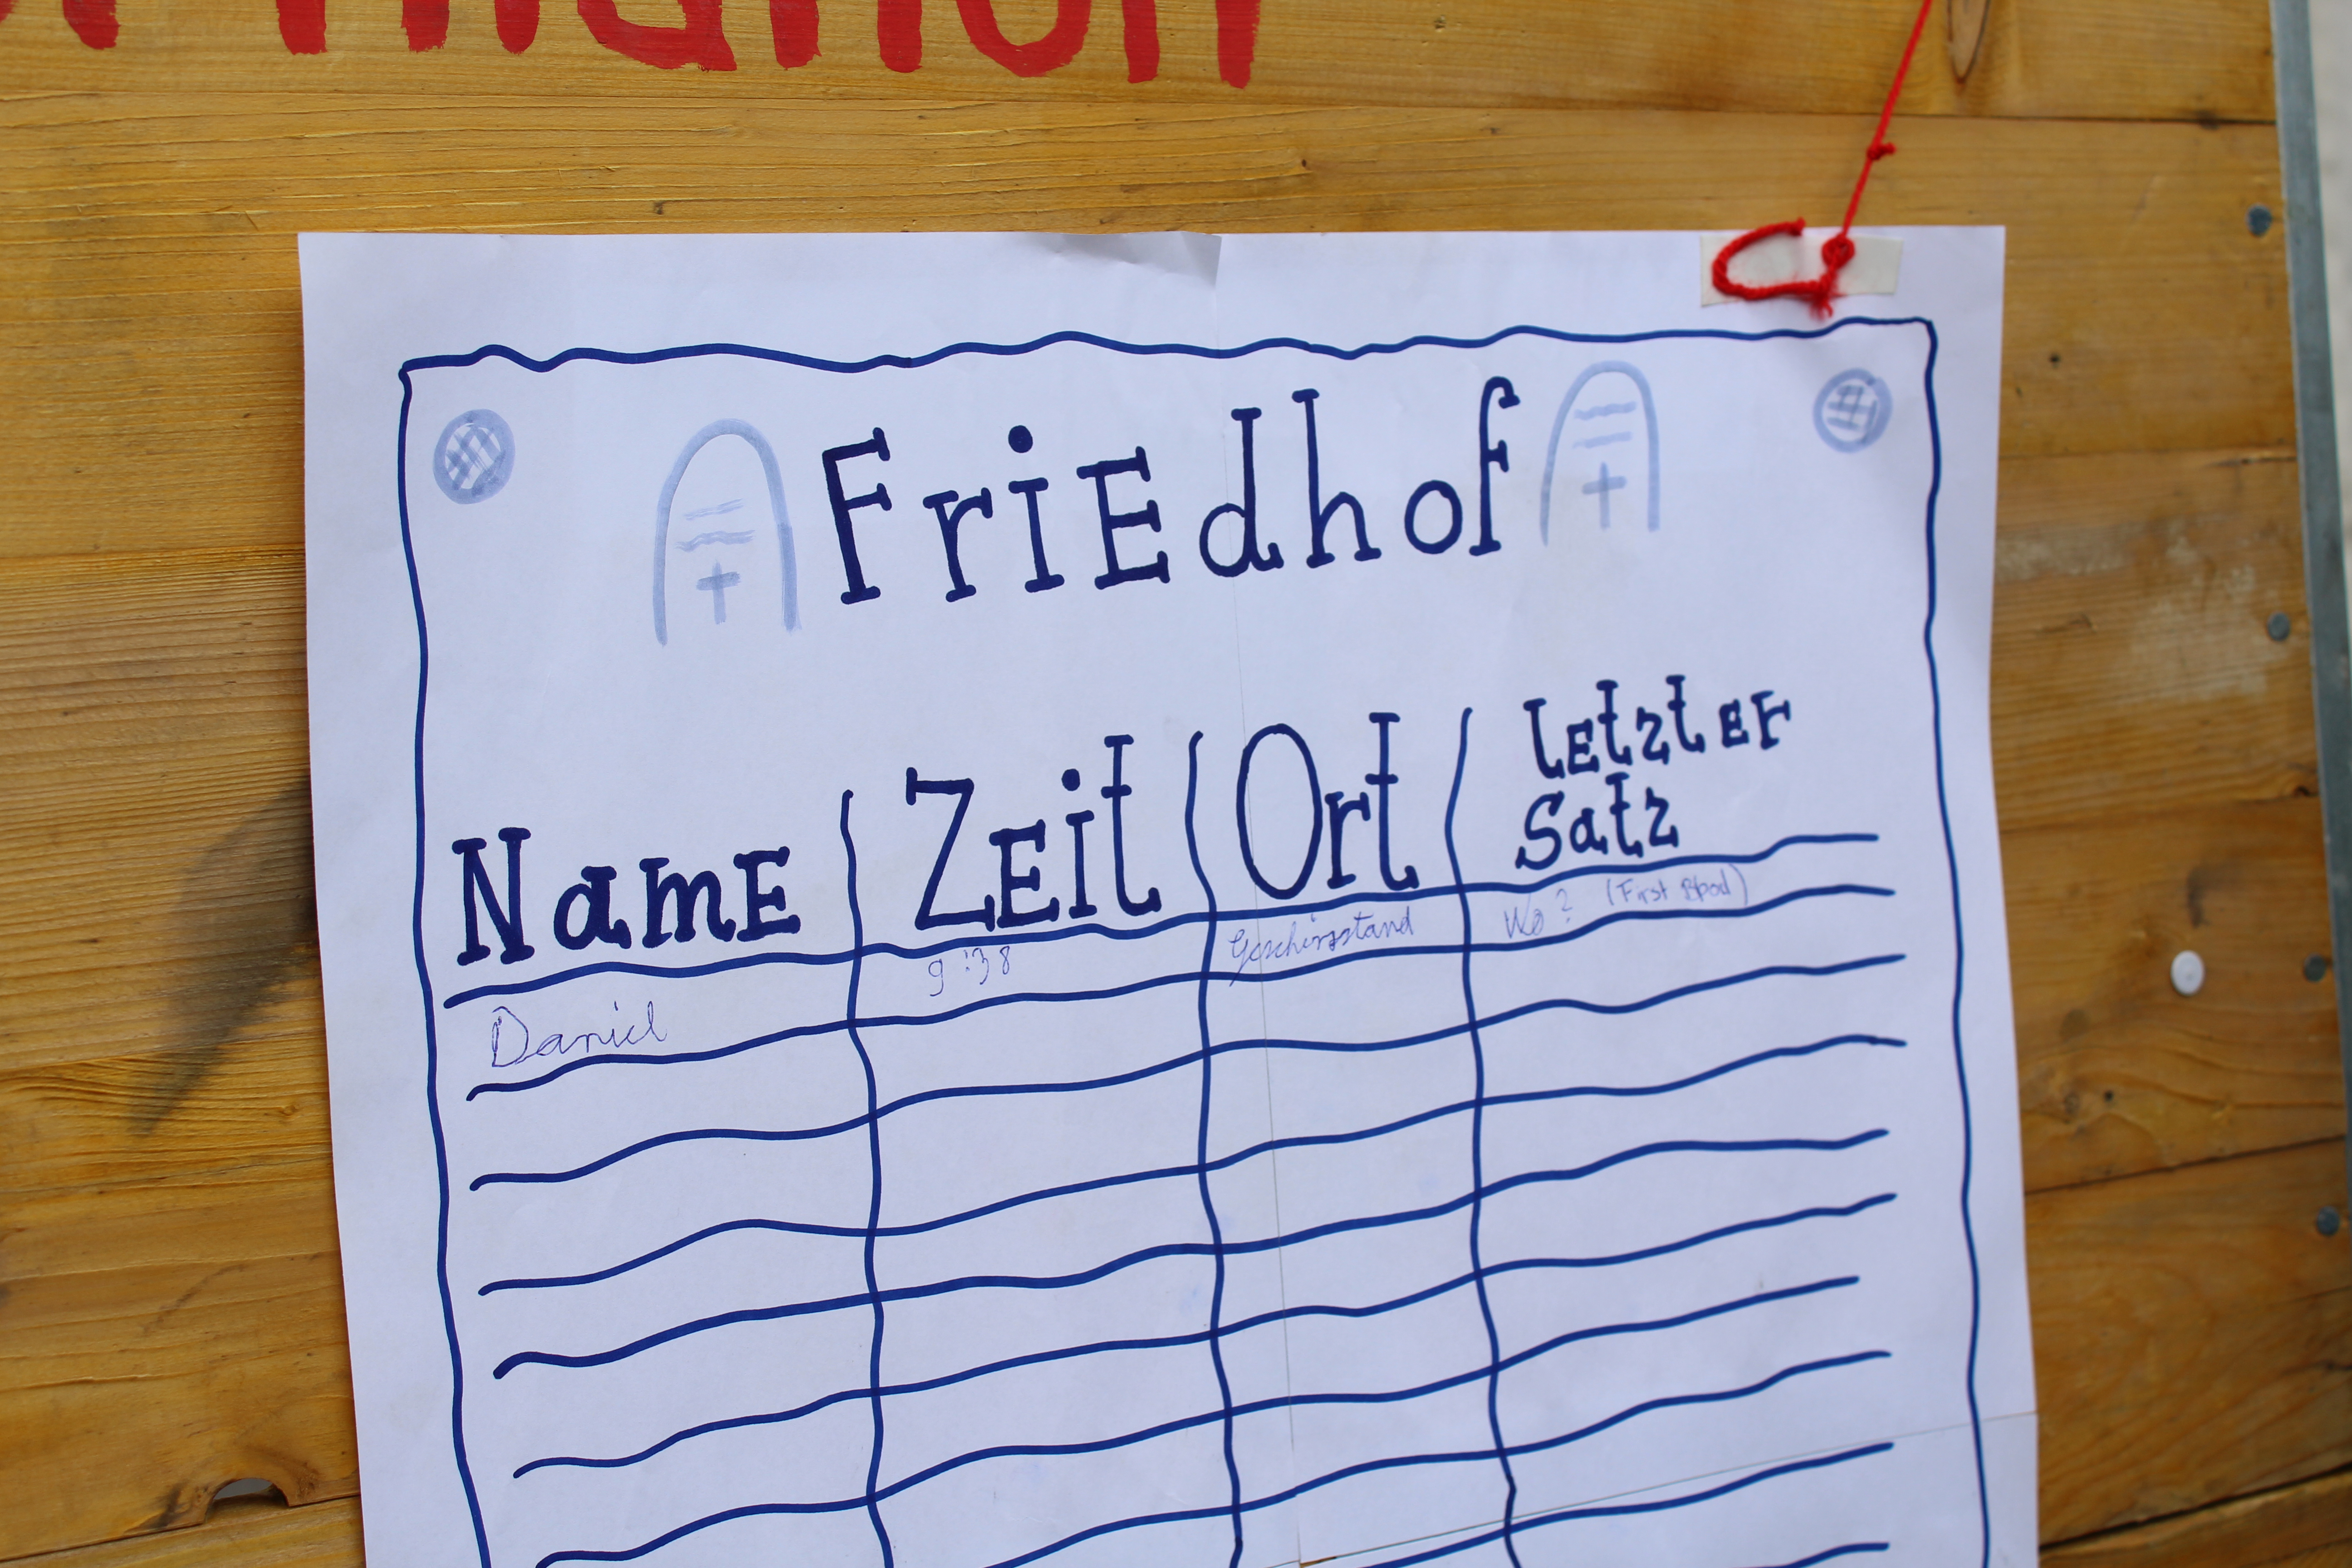 FriEdhof
NamE
ZEit
Ort
letztEr
Satz
Daniel
9:38
Geschirrstand
Wo? (First Blood)